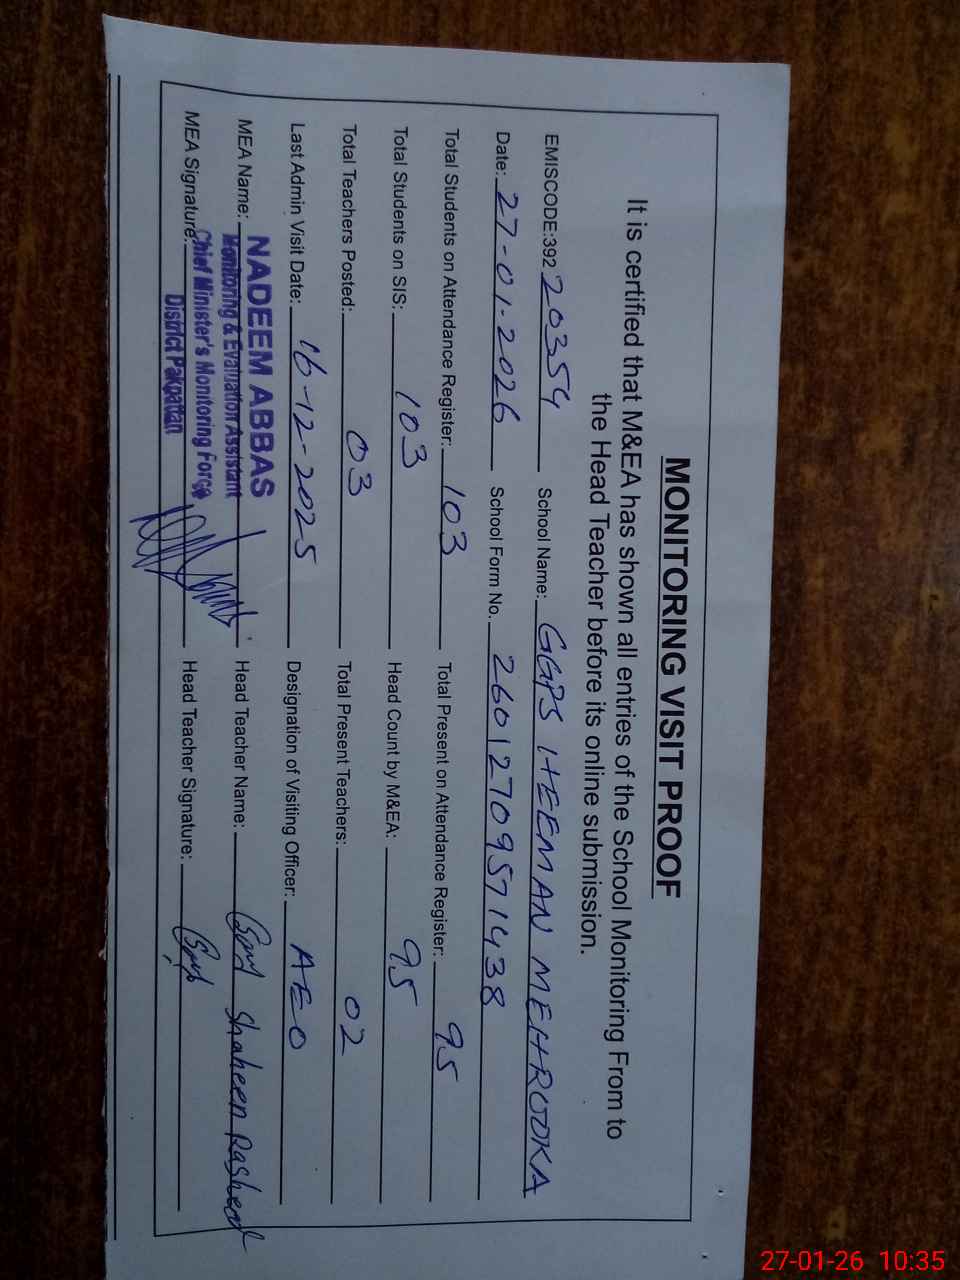 MONITORING VISIT PROOF
It is certified that M&EA has shown all entries of the School Monitoring From to
the Head Teacher before its online submission.
EMISCODE:392 20359 School Name: GGPS HEEMAN MEHROOKA
Date: 27-01-2026 School Form No. 26012709571438
Total Students on Attendance Register: 103 Total Present on Attendance Register: 95
Total Students on SIS: 103 Head Count by M&EA: 95
Total Teachers Posted: 03 Total Present Teachers: 02
Last Admin Visit Date: 16-12-2025 Designation of Visiting Officer: AEO
MEA Name: NADEEM ABBAS Head Teacher Name: Shaheen Rasheed
Monitoring & Evaluation Assistant
MEA Signature: Chief Minister's Monitoring Force Head Teacher Signature:
District Pakpattan
27-01-26 10:35